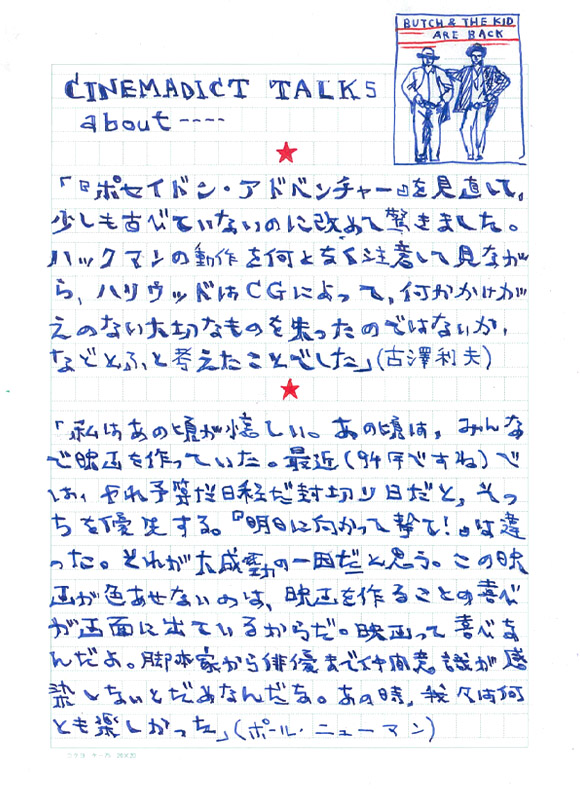 BUTCH & THE KID
ARE BACK
CINEMADICT TALKS
about----
「『ポセイドン・アドベンチャー』を見直して、
少しも古びていないのに改めて驚きました。
ハックマンの動作を何となく注意して見なが
ら、ハリウッドはCGによって、何かかけが
えのない大切なものを失ったのではないか、
などとふと考えたことでした」(古澤利夫)
「私はあの頃が懐しい。あの頃は、みんな
で映画を作っていた。最近(94年ですね)で
は、やれ予算だ日程だ封切り日だと、そっ
ちを優先する。『明日に向かって撃て!』は違
った。それが大成功の一因だと思う。この映
画が色あせないのは、映画を作ることの喜び
が画面に出ているからだ。映画って喜びな
んだよ。脚本家から俳優まで仲間意識が感
染しないとだめなんだな。あの時、我々は何
とも楽しかった」(ポール・ニューマン)